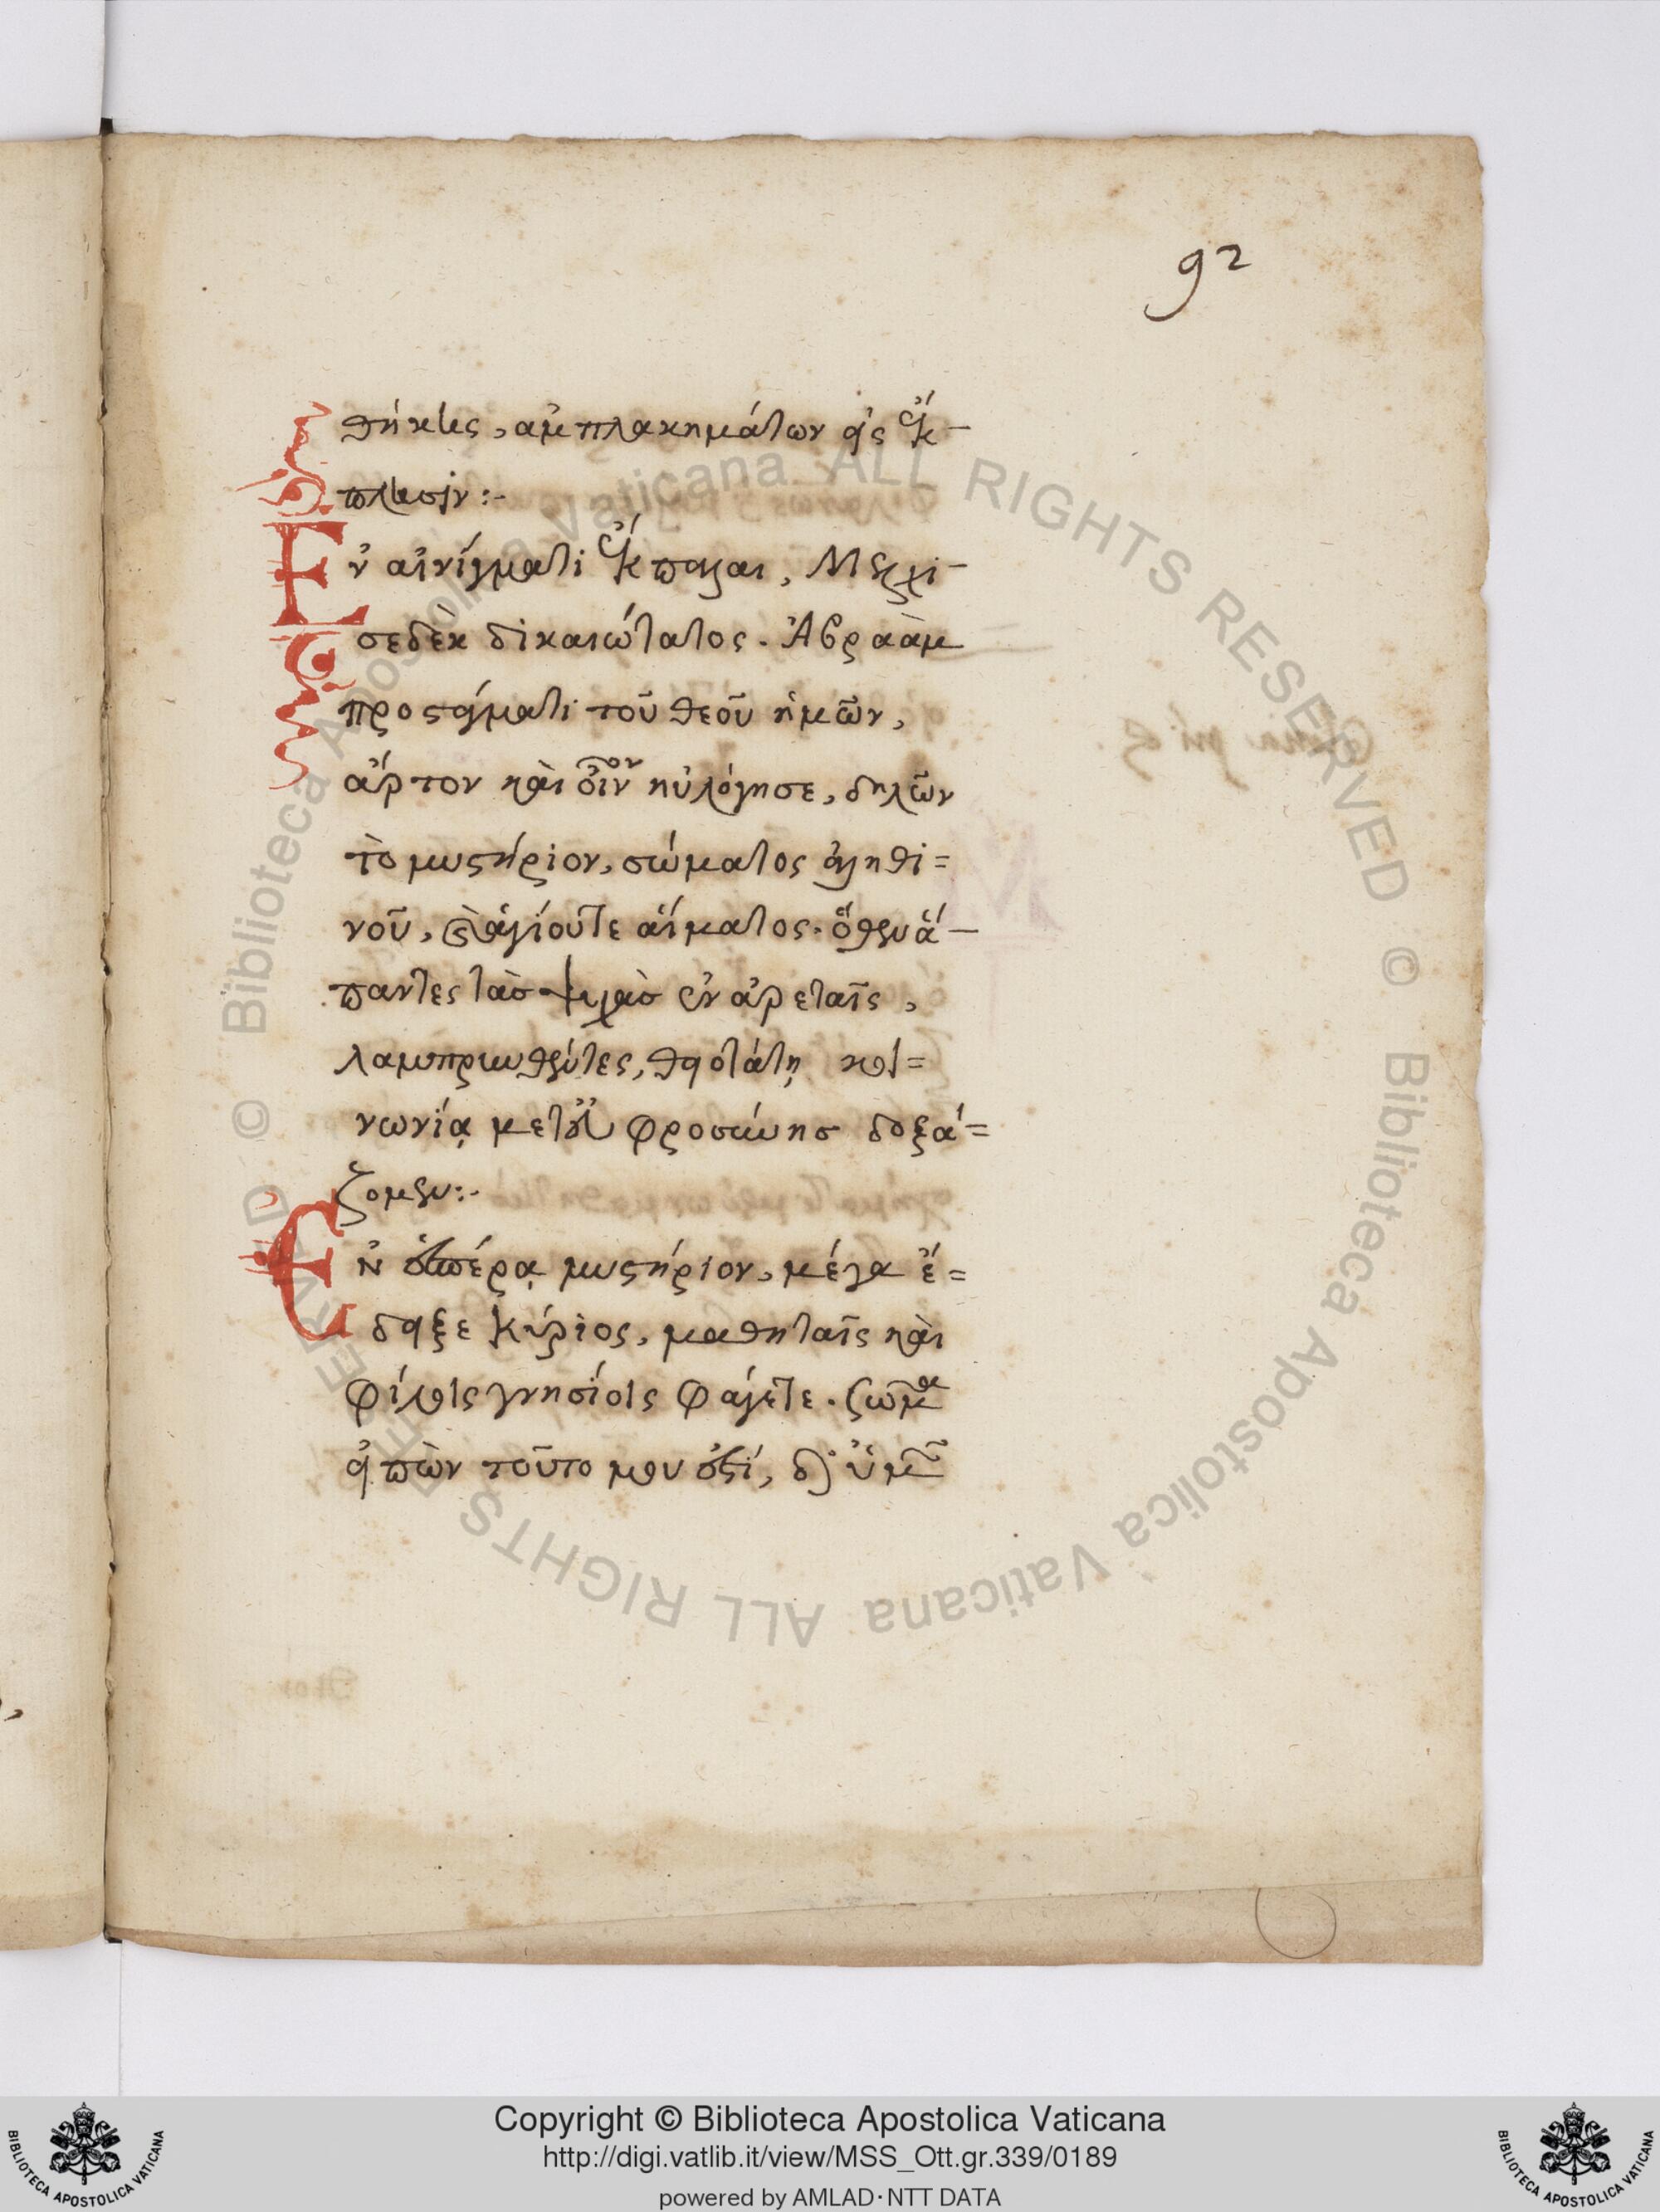 92
θήκης, ἀμπλακημάτων εἰς ἔκ-
πλυσιν:-
Ἐν αἰνίγματι ἔκπαλαι, Μελχι-
σεδὲκ δικαιώτατος. Ἀβραὰμ
προστάγματι τοῦ θεοῦ ἡμῶν,
ἄρτον καὶ οἶνον ηὐλόγησε, δηλῶν
τὸ μυστήριον, σώματος ἀληθι=
νοῦ, καὶ ἁγίου τε αἵματος. ὅθεν ἅ-
παντες τὰς ψυχὰς ἐν ἀρεταῖς,
λαμπρυνθέντες, θειοτάτῃ κοι=
νωνίᾳ μετ' εὐφροσύνης δοξά=
ζομεν:-
Ἐν ἑσπέρᾳ μυστήριον, μέγα ἔ=
δειξε Κύριος, μαθηταῖς καὶ
φίλοις γνησίοις φάγετε. ζῶμα
εἰπὼν τοῦτο μου ἐστί, δι' ὑμᾶς
Copyright © Biblioteca Apostolica Vaticana
http://digi.vatlib.it/view/MSS_Ott.gr.339/0189
powered by AMLAD·NTT DATA
BIBLIOTECA APOSTOLICA VATICANA
BIBLIOTECA APOSTOLICA VATICANA
© Biblioteca Apostolica Vaticana ALL RIGHTS RESERVED © Biblioteca Apostolica Vaticana ALL RIGHTS RESERVED